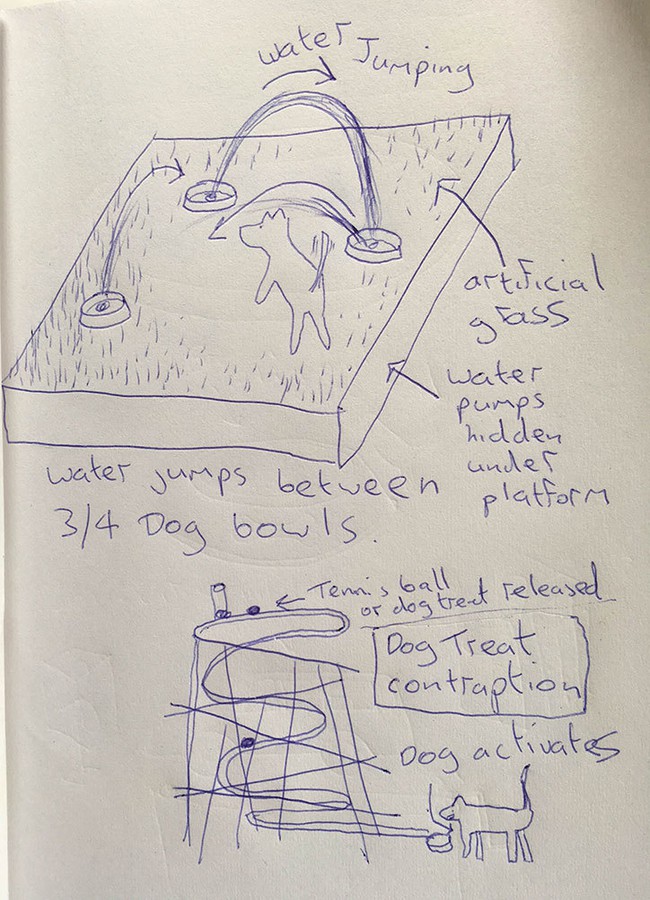 water Jumping
artificial
grass
water
pumps
hidden
under
platform
water jumps between
3/4 Dog bowls.
Tennis ball
or dog treat released
Dog Treat
contraption
Dog activates